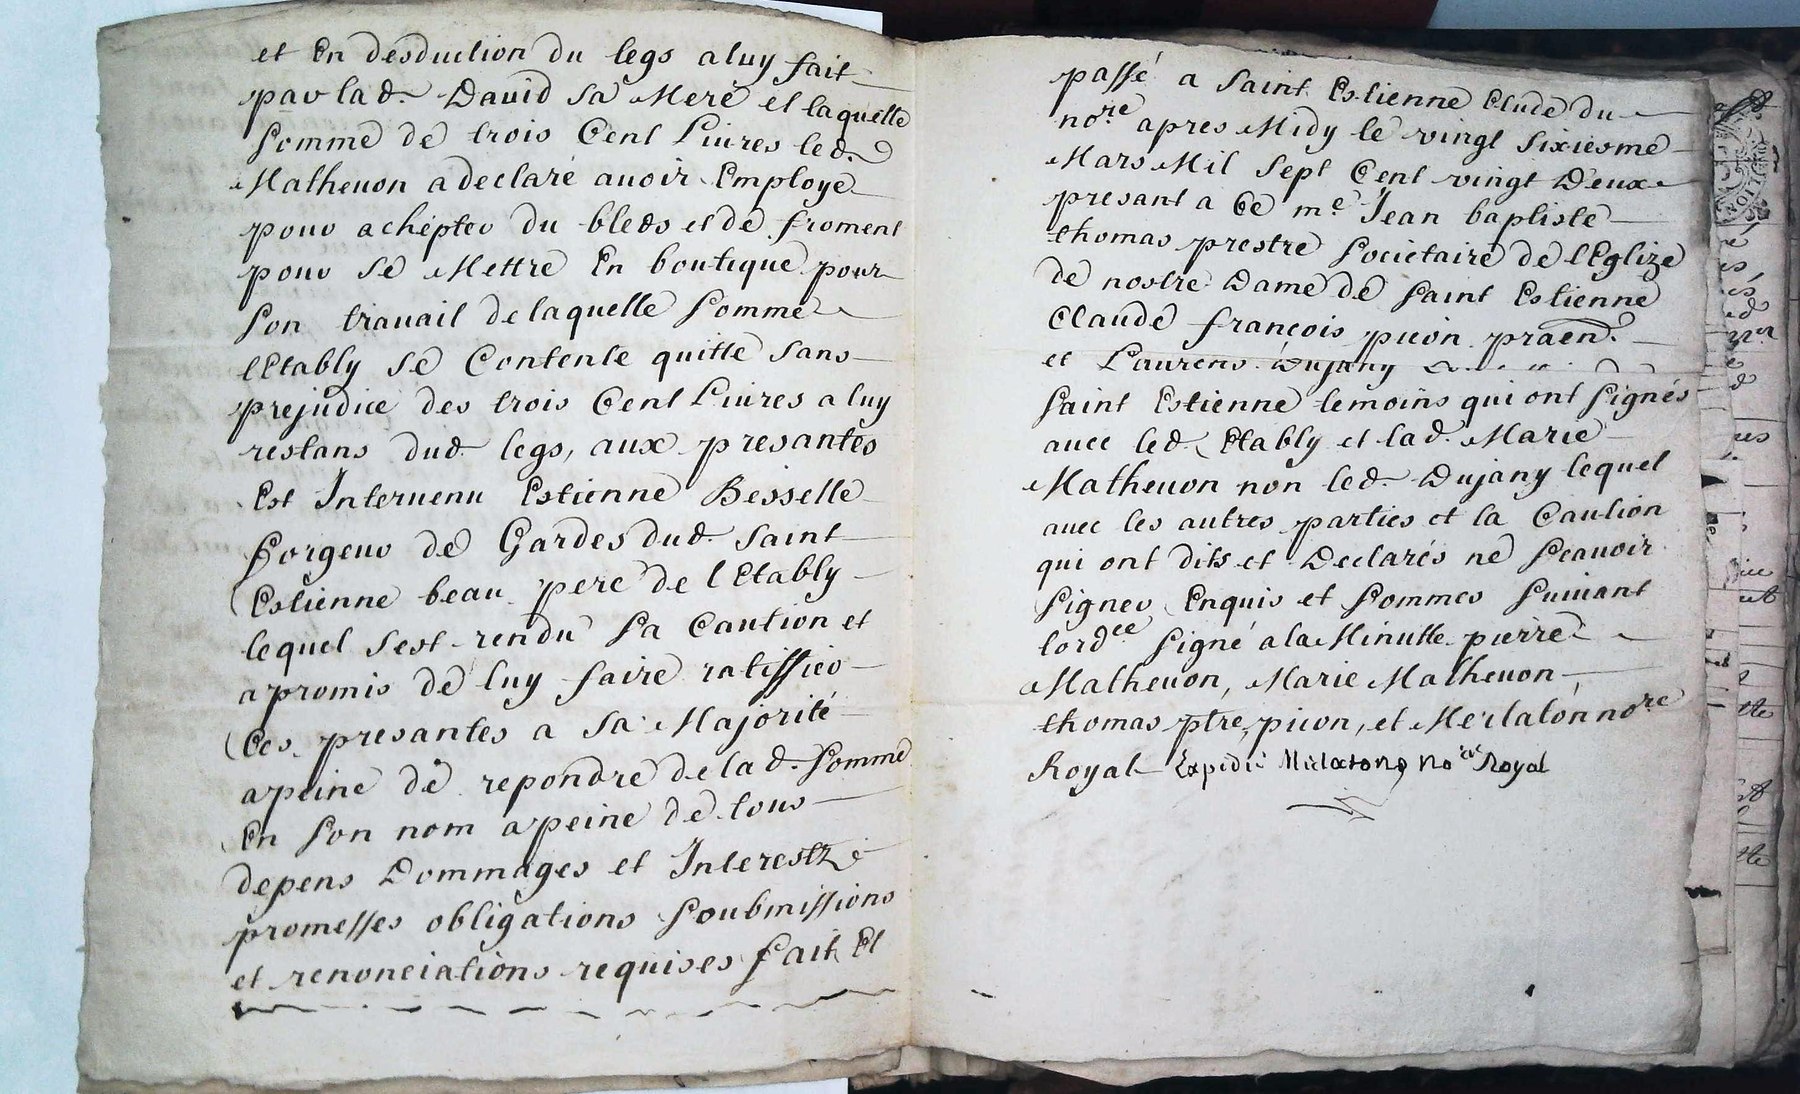 et En desduction du legs a luy fait
par lad. David sa Mere et laquelle
somme de trois Cent Livres led.
Mathevon a declaré avoir Employé
pour achépter du bleds et de froment
pour se Mettre En boutique pour
son travail de laquelle somme
lEtably se Contente quitte sans
prejudice des trois Cent Livres a luy
restans dud. legs, aux presantes
Est Intervenu Estienne Besselle
forgeur de Gardes dud. Saint
Estienne beau pere de lEtably
lequel sest rendu sa Caution et
a promis de luy faire ratiffier
Ces presantes a sa Majorité
a peine de repondre de lad. somme
En son nom a peine de tous
depens Dommages et Interestz
promesses obligations soubmissions
et renonciations requises fait Et
passé a Saint Estienne Etude du
nore. apres Midy le vingt sixiesme
Mars Mil sept Cent vingt Deux
presant a Ce me. Jean baptiste
thomas prestre societaire de lEglize
de nostre Dame de Saint Estienne
Claude françois picon praen.
et Laurens Dujany
Saint Estienne temoins qui ont signés
avec led. Etably et lad. Marie
Mathevon non led. Dujany lequel
avec les autres parties et la Caution
qui ont dits et Declarés ne sçavoir
signer Enquis et sommes suivant
lordce signé a la Minutte pierre
Mathevon, Marie Mathevon
thomas ptre, picon, et Merlaton nore
Royal Expedié Merlatong nore Royal